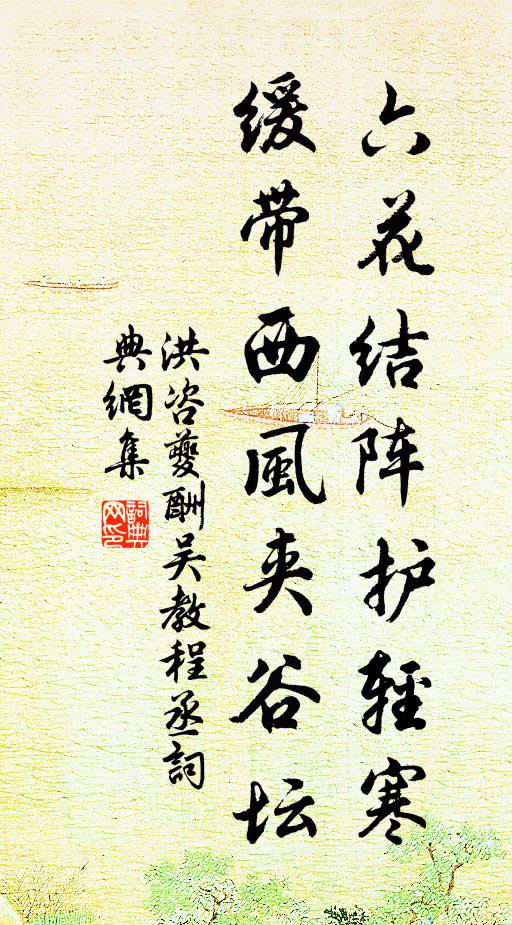 六花结阵护轻寒
缓带西風夹谷坛
洪咨夔酬吴教程丞詞
典網集
詞典
网印